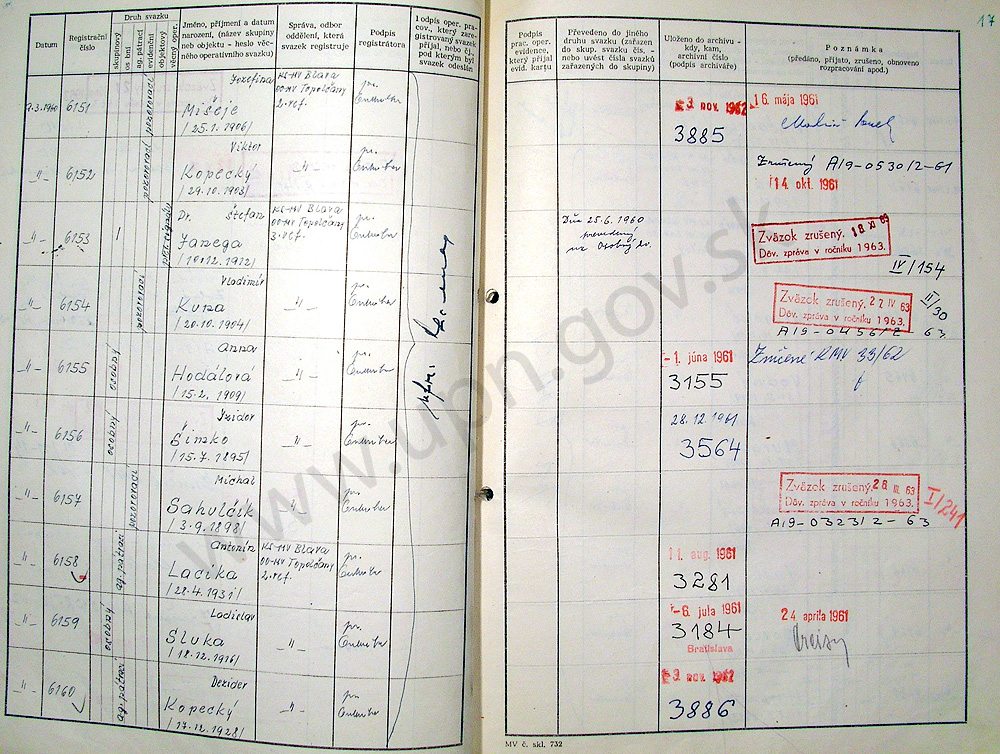 17
Datum
Registrační číslo
Druh svazku
skupinový
os tní
ag. pátrací
evidenční
objektový
věcný oper.
Jméno, příjmení a datum
narození, (název skupiny
neb objektu - heslo věc-
ného operativního svazku)
Správa, odbor
oddělení, která
svazek registruje
Podpis
registrátora
podpis oper. prac-
cov., který zare-
gistrovaný svazek
přijal, nebo čj.,
pod kterým byl
svazek odeslán
Podpis
prac. oper.
evidence,
který přijal
evid. kartu
Převedeno do jiného
druhu svazku (zařazen
do skup. svazku čís. -
nebo uvést čísla svazků
zařazených do skupiny)
Uloženo do archivu -
kdy, kam,
archivní číslo
(podpis archiváře)
Poznámka
(předáno, přijato, zrušeno, obnoveno
rozpracování apod.)
9.3.1960
6151
pozorovací
Jozefína
Mišeje
/25.1.1906/
KS-MV Blava
OO-MV Topoľčany
2. ref.
3 nov. 1962
3885
16. mája 1961
—„—
6152
pozorovací
Viktor
Kopecký
/29.10.1903/
—„—
Zrušený A19-0530/2-61
14. okt. 1961
—„—
6153
Dr. Štefan
Janega
/10.12.1922/
KS-MV Blava
OO-MV Topoľčany
3. ref.
Dňa 25.6.1960
prevedený
na Osobný zv.
Zväzok zrušený. 18 XI 63
Dôv. zpráva v ročníku 1963.
IV/154
—„—
6154
pozorovací
Vladimír
Kuna
/20.10.1904/
—„—
Zväzok zrušený. 22 IV 63
Dôv. zpráva v ročníku 1963.
II/30
A19-0456/2 63
—„—
6155
osobný
Anna
Hodálová
/15.2.1909/
—„—
-1. júna 1961
3155
Zničené RMV 33/62
—„—
6156
osobný
Izidor
Šimko
/15.7.1895/
—„—
28.12.1961
3564
—„—
6157
pozorovací
Michal
Sahulčík
/3.9.1898/
—„—
Zväzok zrušený. 26 III. 63
Dôv. zpráva v ročníku 1963.
I/241
A19-0323/2-63
—„—
6158
ag. pátrací
Antonín
Lacika
/28.4.1931/
KS-MV Blava
OO-MV Topoľčany
2. ref.
11 aug. 1961
3281
—„—
6159
osobný
Ladislav
Sluka
/18.12.1916/
—„—
-6. júla 1961
3184
Bratislava
24 apríla 1961
—„—
6160
ag. pátrací
Dezider
Kopecký
/17.12.1928/
—„—
3 nov. 1962
3886
MV č. skl. 732
www.upn.gov.sk